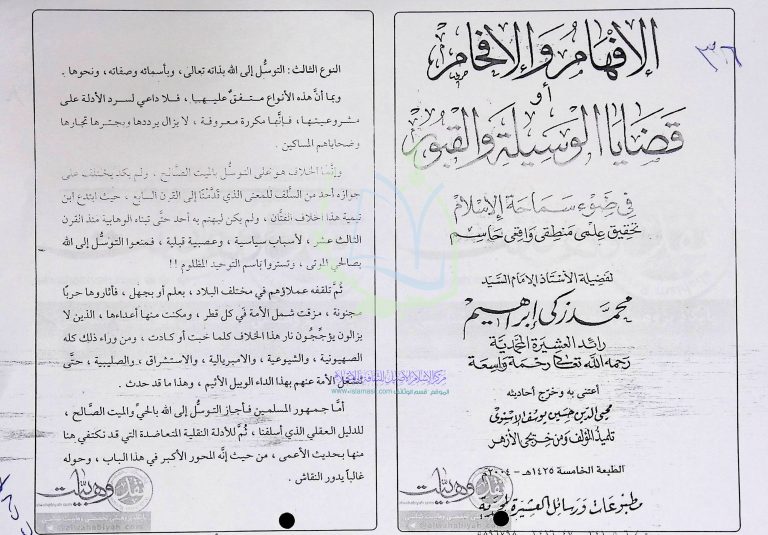 الإفهام والإفحام
أو
قضايا الوسيلة والقبور
في ضوء سماحة الإسلام
تحقيق علمي منطقي واقعي حاسم
لفضيلة الأستاذ الإمام السيد
محمد زكي إبراهيم
رائد العشيرة المحمدية
رحمه الله تعالى رحمة واسعة
اعتنى به وخرّج أحاديثه
محيي الدين حسين يوسف الإسنوي
تلميذ المؤلف ومن خريجي الأزهر
الطبعة الخامسة ١٤٢٥هـ - ٢٠٠٤م
مطبوعات ورسائل العشيرة المحمدية
٣٦
النوع الثالث : التوسُّل إلى الله بذاته تعالى ، وبأسمائه وصفاته ، ونحوها .
وبما أنَّ هذه الأنواع متفقٌ عليها ، فلا داعي لسرد الأدلة على
مشروعيتها ، فإنَّها مكررة معروفة ، لا يزال يرددها ويجترها تجارها
وضحاياهم المساكين .
وإنَّما الخلاف هو على التوسُّل بالميت الصَّالح ، ولم يكد يختلف على
جوازه أحد من السَّلف للمعنى الذي قدَّمْنَا إلى القرن السابع ، حيث ابتدع ابن
تيمية هذا الخلاف الفتَّان ، ولم يكن ليهتم به أحد حتَّى تبناه الوهابية منذ القرن
الثالث عشر ، لأسباب سياسية ، وعصبية قبلية ، فمنعوا التوسُّل إلى الله
بصالحي الموتى ، وتستروا باسم التوحيد المظلوم !!
ثُمَّ تلقفه عملاؤهم في مختلف البلاد ، بعلم أو بجهل ، فأثاروها حربًا
مجنونة ، مزقت شمل الأمة في كل قطر ، ومكنت منها أعداءها ، الذين لا
يزالون يؤجِّجُون نار هذا الخلاف كلما خبت أو كادت ، ومن وراء ذلك كله
الصهيونية ، والشيوعية ، والامبريالية ، والاستشراق ، والصليبية ، حتَّى
تنشغل الأمة عنهم بهذا الداء الوبيل الأثيم ، وهذا ما قد حدث .
أمَّا جمهور المسلمين فأجاز التوسُّل إلى الله بالحيِّ والميت الصَّالح ،
للدليل العقلي الذي أسلفنا ، ثُمَّ للأدلة النقلية المتعاضدة التي قد نكتفي هنا
منها بحديث الأعمى ، من حيث إنَّه المحور الأكبر في هذا الباب ، وحوله
غالباً يدور النقاش .
نقد وهابيت
alwahabiyah.com